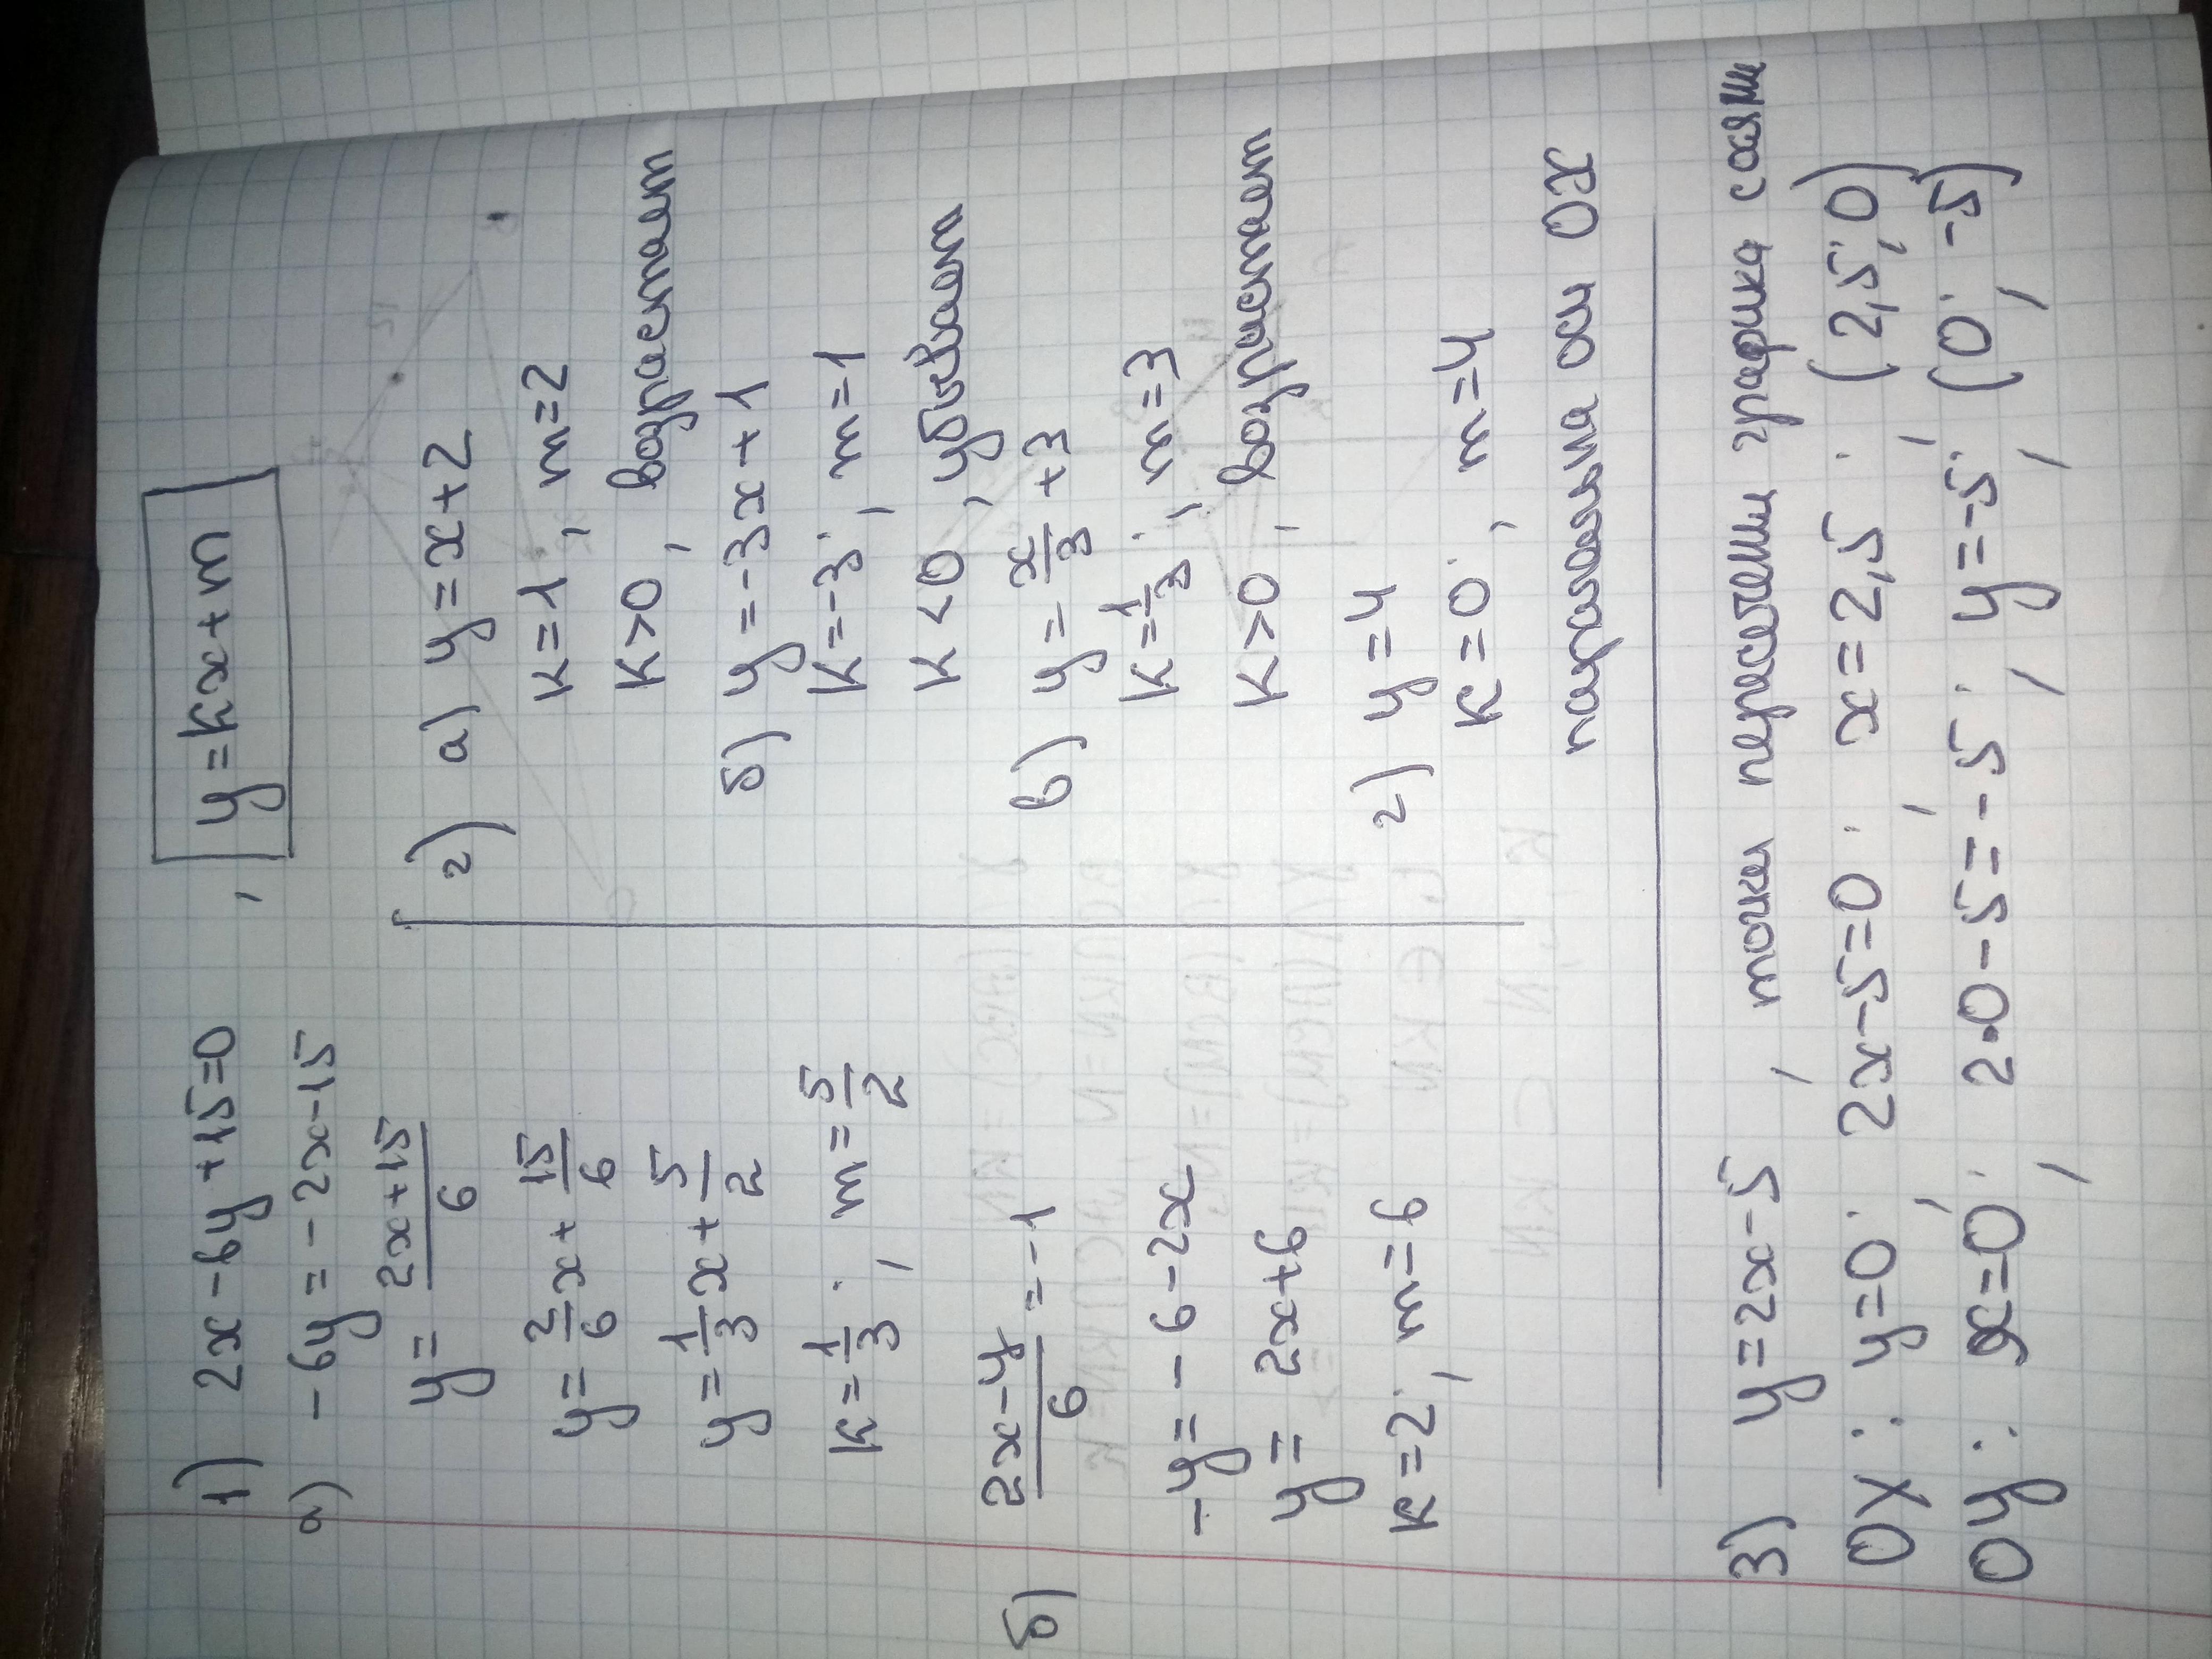 1) 2x - 6y + 15 = 0 , y = kx + m
а) - 6y = - 2x - 15
y = (2x + 15)/6
y = 2/6 x + 15/6
y = 1/3 x + 5/2
k = 1/3 ; m = 5/2
б) (2x - y)/6 = - 1
- y = - 6 - 2x
y = 2x + 6
k = 2 ; m = 6
2) а) y = x + 2
k = 1 , m = 2
k > 0 , возрастает
б) y = - 3x + 1
k = - 3 ; m = 1
k < 0 , убывает
в) y = x/3 + 3
k = 1/3 ; m = 3
k > 0 , возрастает
г) y = 4
k = 0 ; m = 4
параллельна оси OX
3) y = 2x - 5 , точки пересечения графика с осями
OX : y = 0 ; 2x - 5 = 0 ; x = 2,5 ; (2,5 ; 0)
OY : x = 0 ; 2 · 0 - 5 = - 5 ; y = - 5 ; (0 ; - 5)